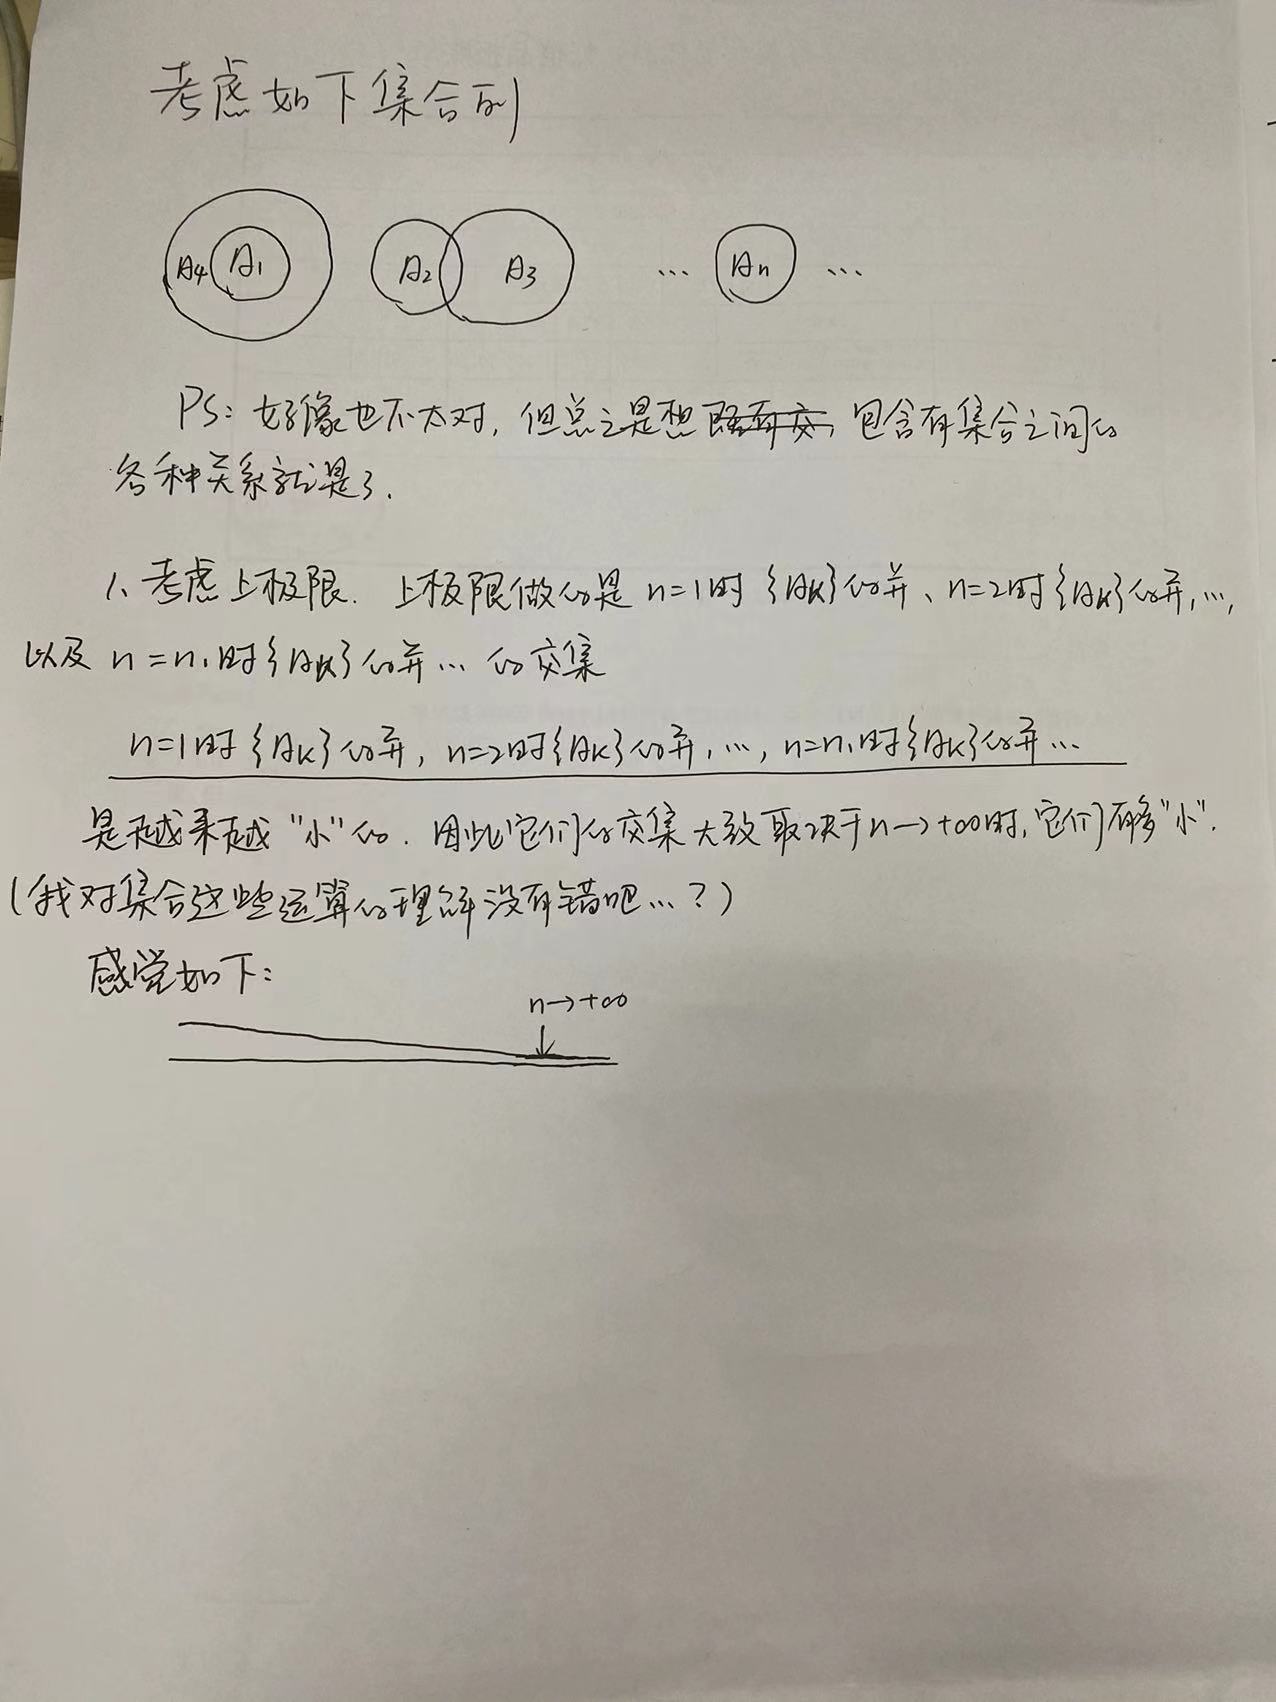 考虑如下集合列
A4 A1 A2 A3 … An …
PS：好像也不太对，但总之是想 包含有集合之间的
各种关系就是了．
1、考虑上极限．上极限做的是 n=1时{Ak}的并、n=2时{Ak}的并，…，
以及 n=n1时{Ak}的并… 的交集
n=1时{Ak}的并，n=2时{Ak}的并，…，n=n1时{Ak}的并…
是越来越“小”的．因此它们的交集大致取决于n→+∞时，它们有多“小”．
（我对集合这些运算的理解没有错吧…？）
感觉如下：
n→+∞